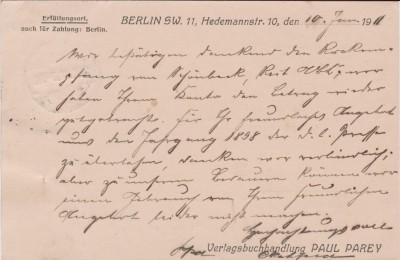 Erfüllungsort,
auch für Zahlung: Berlin.
BERLIN SW. 11, Hedemannstr. 10, den 10. Juni 1911
Wir bestätigen dankend den Rückem-
pfang von Schönbeck, Reit ABC, wir
haben Ihrem Konto den Betrag wieder
gutgebracht. Für Ihr freundliches Angebot
uns den Jahrgang 1898 der d. l. Presse
zu überlassen, danken wir verbindlich;
aber zu unserm Bedauern können wir
einen Gebrauch von Ihrem freundlichen
Angebot leider nicht machen.
Hochachtungsvoll
Verlagsbuchhandlung PAUL PAREY